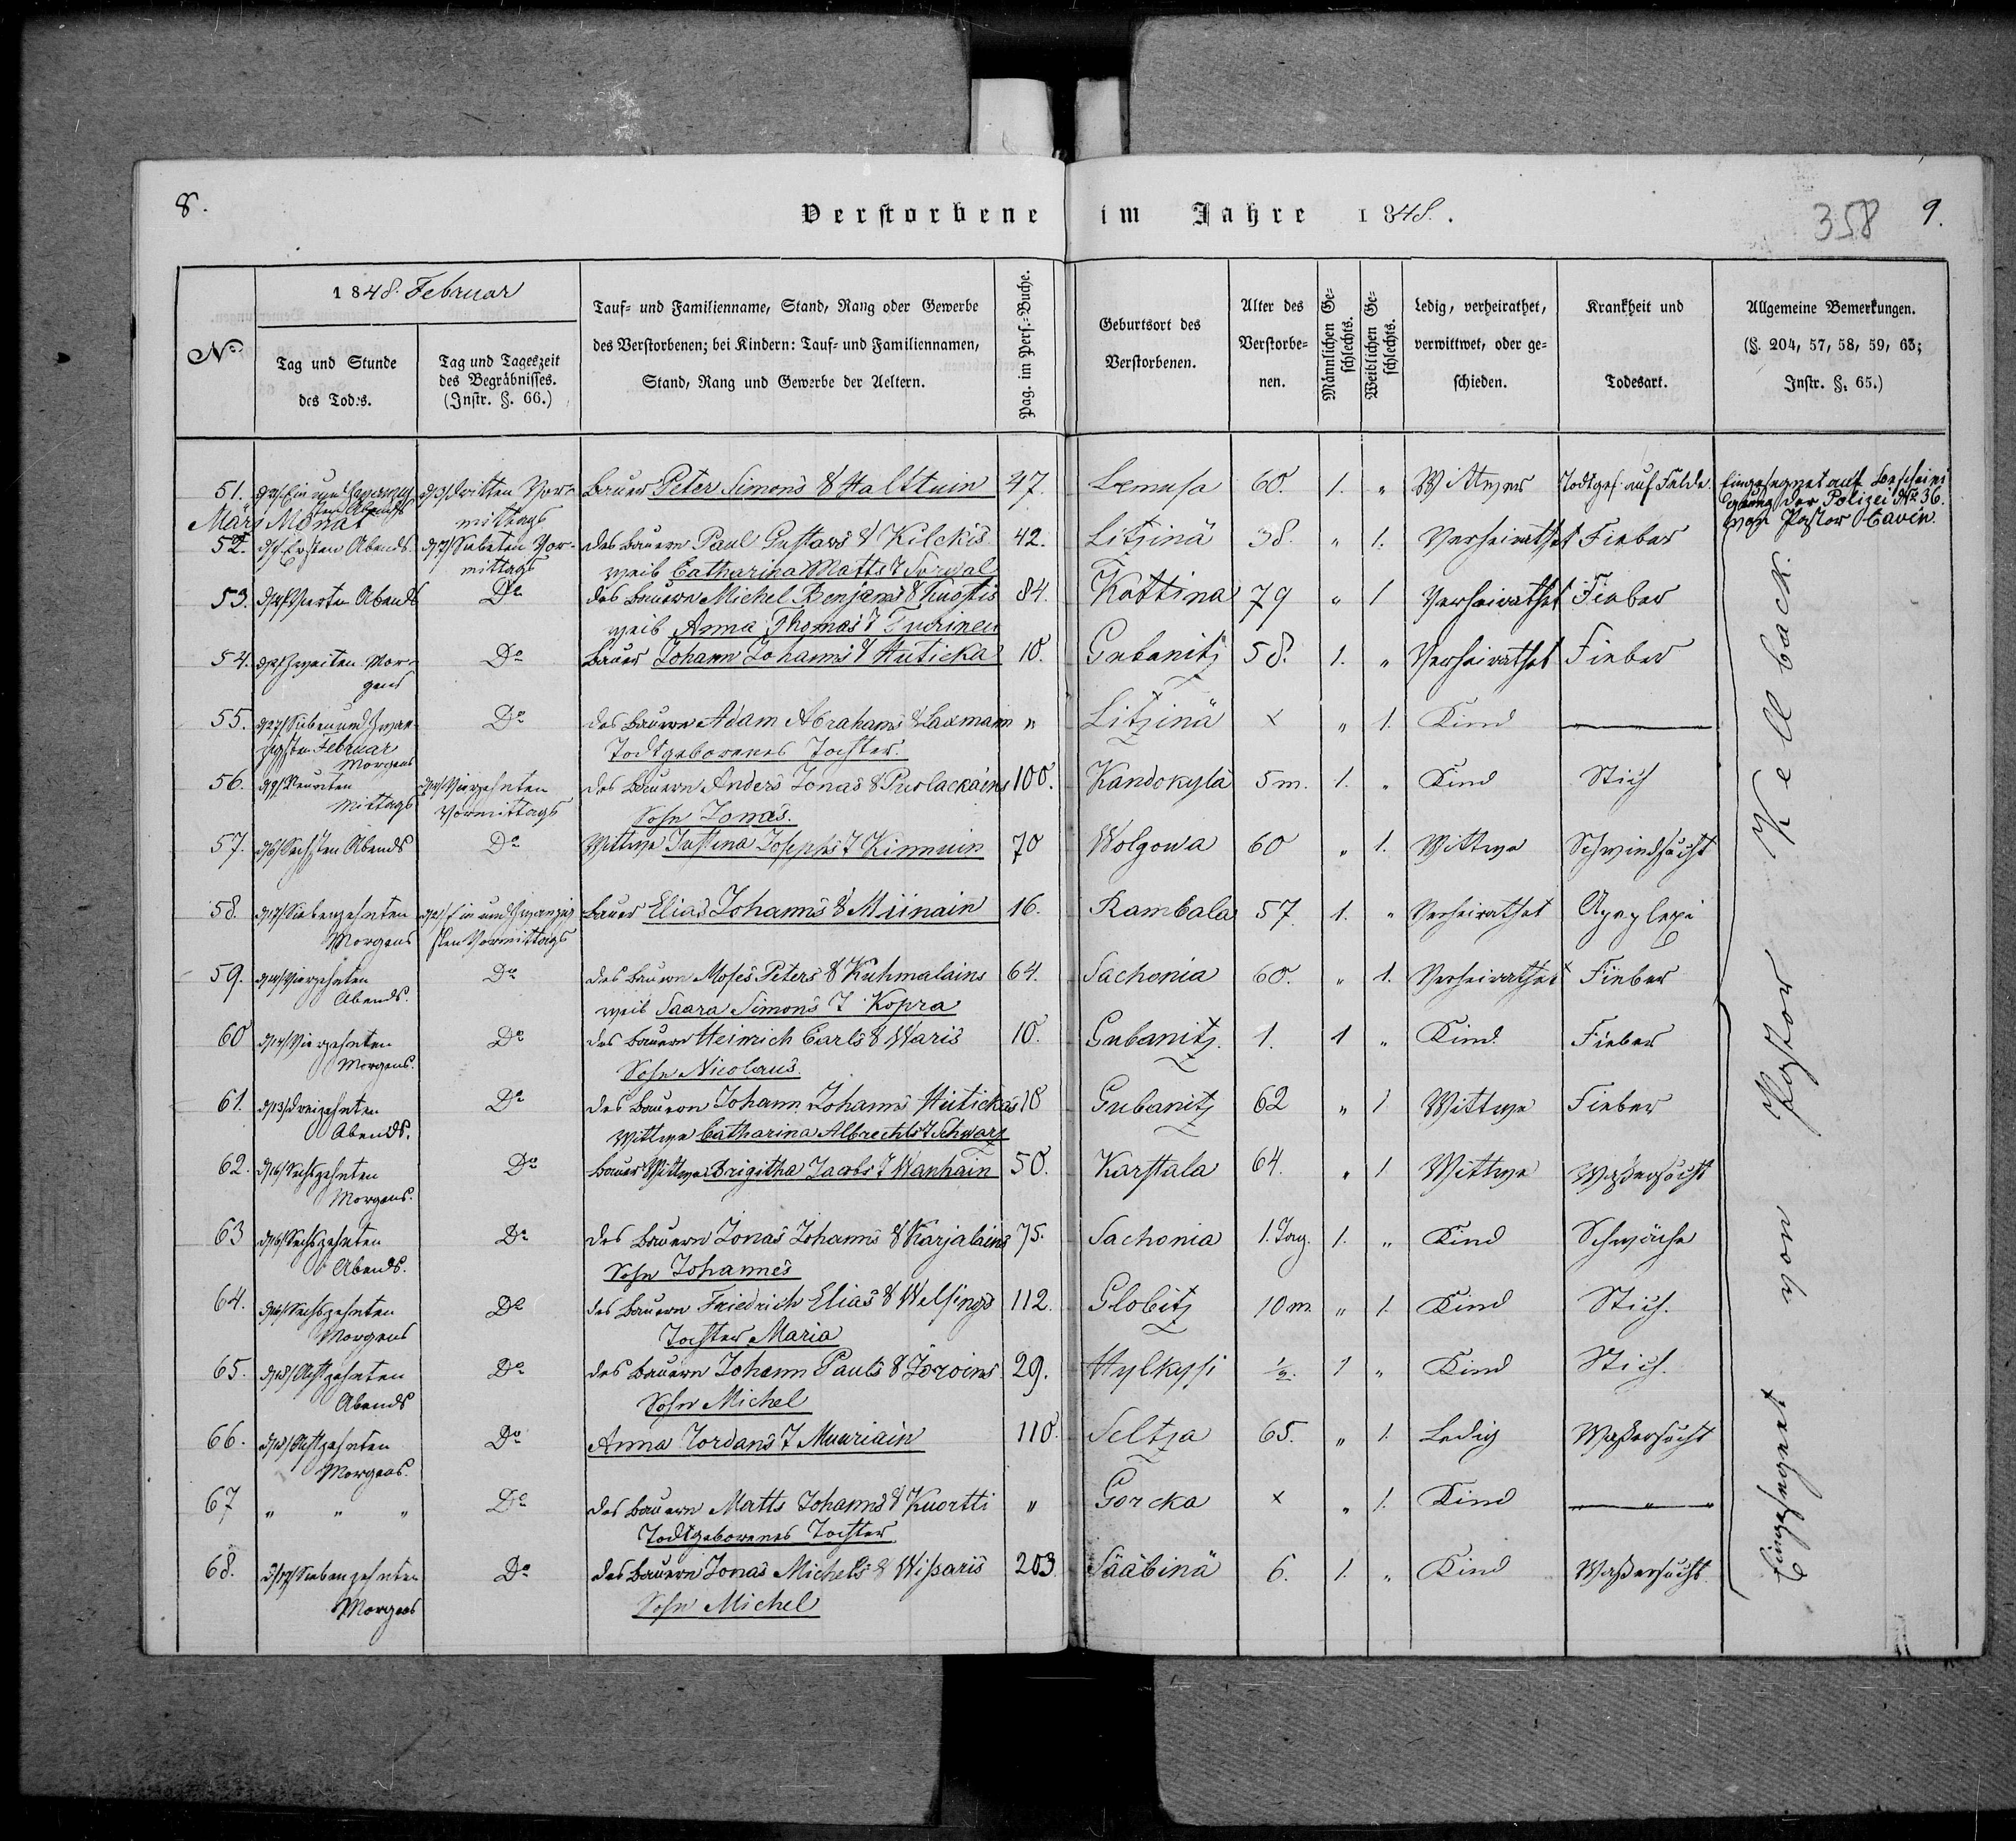 8.
Verstorbene im Jahre 1848.
358 9.
No.
1848. Februar
Tag und Stunde des Todes.
Tag und Tageszeit des Begräbnisses. (Instr. §. 66.)
Tauf- und Familienname, Stand, Rang oder Gewerbe des Verstorbenen; bei Kindern: Tauf- und Familiennamen, Stand, Rang und Gewerbe der Aeltern.
Pag. im Pers.-Buche.
Geburtsort des Verstorbenen.
Alter des Verstorbenen.
Männlichen Geschlechts.
Weiblichen Geschlechts.
Ledig, verheirathet, verwittwet, oder geschieden.
Krankheit und Todesart.
Allgemeine Bemerkungen. (§. 204, 57, 58, 59, 63; Instr. §. 65.)
51. d/3/ dritten Vormittags Bauer Peter Simons S Halttuin 47. Lemusa 60. 1. " Wittwer Todtgef. auf Felde. Eingesegnet auf der Polizei No 36. von Pastor Cavén
März Monat
52. d/1/ Ersten Abends. d/7/ Siebeten Vormittags des Bauern Paul Gustavs S Kilckis 42. Litzinä 38. " 1. Verheirathet Fieber
weib Catharina Matts T Sorwal
53. d/4/ Vierten Abends Do des Bauern Michel Benjams S Kuostis 84. Kottina 79 " 1 Verheirathet Fieber
weib Anna Thomas T Tuurinen
54. d/2/ Zweiten Morgens Do Bauer Johann Johanns S Huticka 10. Gubanitz 58. 1. " Verheirathet Fieber
55. d/27/ Sieben und Zwanzigsten Februar Morgens Do des Bauern Adam Abrahams S Laxmain " Litzinä x " 1. Kind — " —
Todtgeborenes Tochter.
56. d/9/ Neunten Mittags d/14/ Vierzehnten Vormittags des Bauern Anders Jonas S Puolackains 100. Kandokyla 5 m. 1. " Kind Stich
Sohn Jonas.
57. d/6/ Sechsten Abends Do Wittwe Justina Josephs T Kinnuin 70 Wolgowa 60 " 1. Wittwe Schwindsucht
58. d/17/ Siebenzehnten Morgens d/21/ Ein und Zwanzigsten Vormittags Bauer Elias Johanns S Miinain 16. Rambala 57. 1. " Verheirathet Apoplexi
59. d/14/ Vierzehnten Abends. Do des Bauern Moses Peters S Kuhmalains 64. Sachonia 60. " 1. Verheirathet Fieber
weib Saara Simons T Kopra
60 d/14/ Vierzehnten Morgens. Do des Bauern Heinrich Carls S Waris 10. Gubanitz. 1. 1 " Kind Fieber
Sohn Nicolaus.
61. d/13/ Dreizehnten Abends. Do des Bauern Johann Johanns Hutickas 10 Gubanitz 62 " 1 Wittwe Fieber
Wittwe Catharina Albrechts T Schwarz
62. d/16/ Sechszehnten Morgens. Do Bauer Wittwe Brigitha Jacobs T Wanhain 50. Karstala 64. " 1 Wittwe Waßersucht
63 d/16/ Sechszehnten Abends. Do des Bauern Jonas Johanns S Karjalains 75. Sachonia 1. Tag. 1. " Kind Schwäche
Sohn Johannes
64. d/16/ Sechszehnten Morgens Do des Bauern Friedrich Elias S Welsings 112. Globitz 10 m. " 1. Kind Stich.
Tochter Maria
65. d/18/ Achtzehnten Abends Do des Bauern Johann Pauls S Joroins 29. Hylkysi ½. 1 " Kind Stich.
Sohn Michel
66. d/18/ Achtzehnten Morgens. Do Anna Jordans T Muuriain 110. Seltza 65. " 1. Ledig Waßersucht
67 " " " Do des Bauern Matts Johanns S Kuortti " Gorcka x " 1. Kind — " —
Todtgeborenes Tochter
68. d/17/ Siebenzehnten Morgens Do des Bauern Jonas Michels S Wißaris 203 Sääbinä 6. 1. " Kind Waßersucht
Sohn Michel
Eingesegnet von Pastor Kellback.